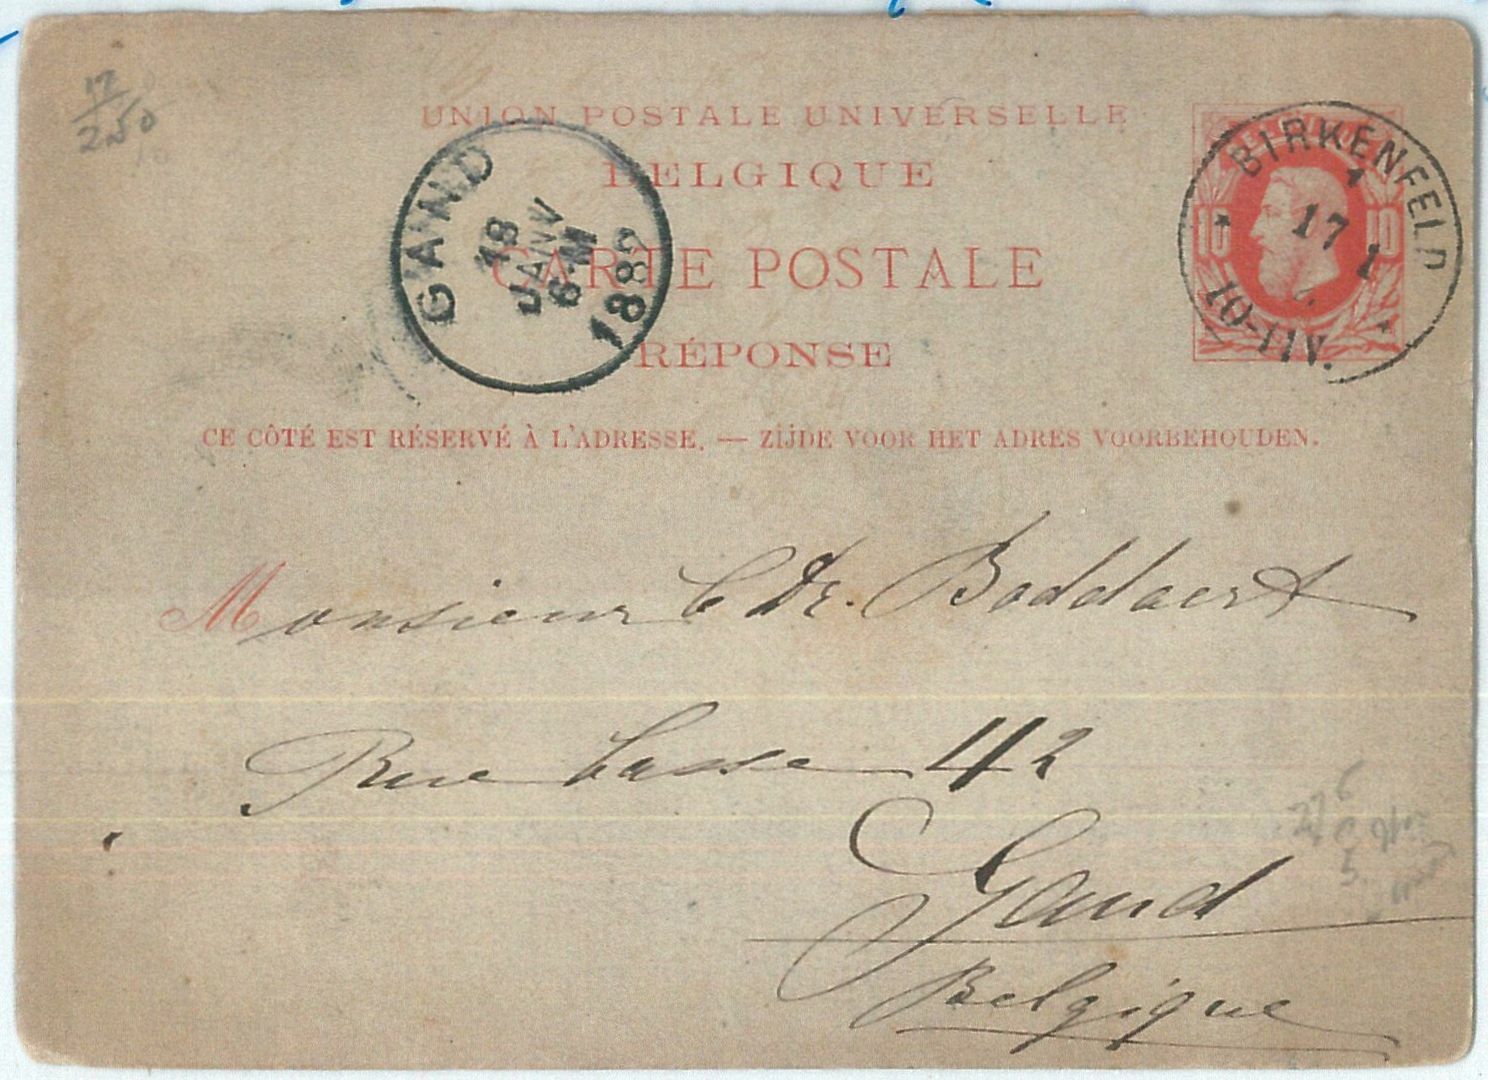 UNION POSTALE UNIVERSELLE
BELGIQUE
CARTE POSTALE
RÉPONSE
CE CÔTÉ EST RÉSERVÉ À L'ADRESSE. — ZIJDE VOOR HET ADRES VOORBEHOUDEN.
GAND
18
JANV
6-M
1882
BIRKENFELD
17 1
10-11V.
10 10
12
250
Monsieur C Dr. Boddaert
Rue basse 42
Gand
Belgique